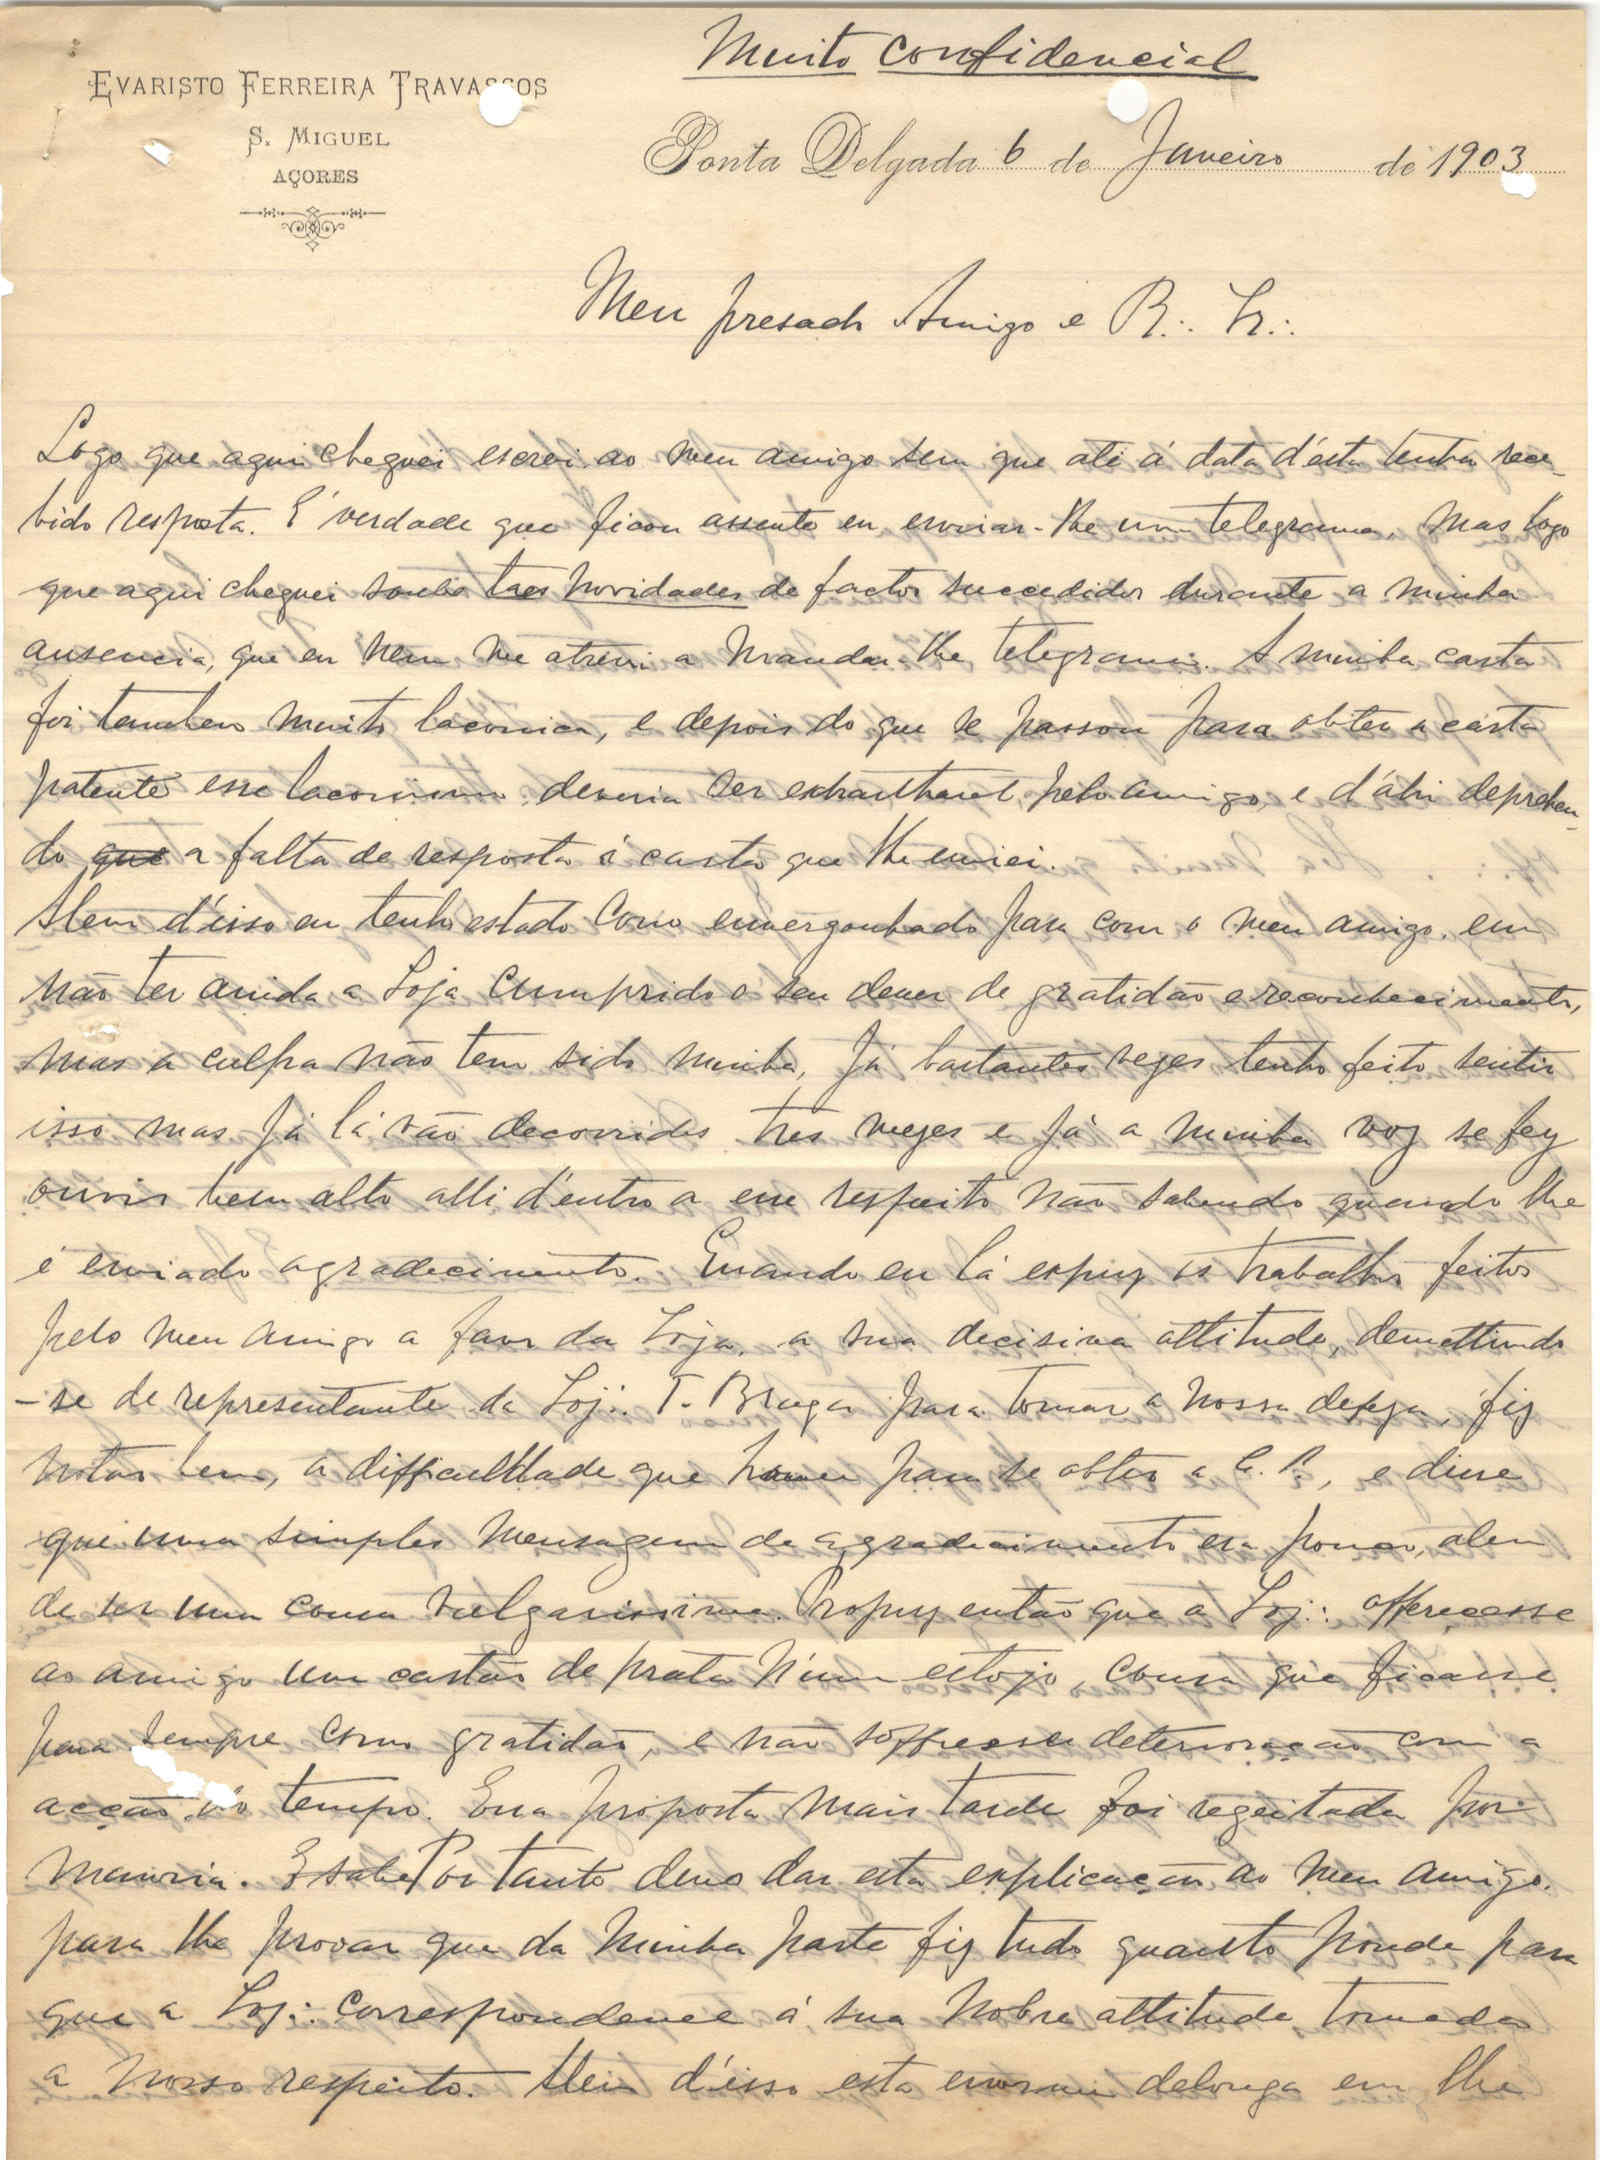 Muito confidencial
EVARISTO FERREIRA TRAVASSOS
S. MIGUEL
AÇORES
Ponta Delgada 6 de Janeiro de 1903
Meu presado Amigo e R∴ Ir∴
Logo que aqui cheguei escrevi ao meu amigo sem que até á data d'esta tenha rece-
bido resposta. É verdade que ficou assente eu enviar-lhe um telegramma, mas logo
que aqui cheguei soube taes novidades de factos succedidos durante a minha
ausencia, que eu nem me atrevi a mandar-lhe telegrama. A minha carta
foi tambem muito laconica, e depois do que se passou para obter a carta
patente esse laconismo deveria ser extranhavel pelo amigo, e d'áhi deprehen-
do que a falta de resposta á carta que lhe enviei.
Alem d'isso eu tenho estado como envergonhado para com o meu amigo em
não ter ainda a Loja cumprido o seu dever de gratidão e reconhecimento,
mas a culpa não tem sido minha, já bastantes vezes tenho feito sentir
isso mas já lá vão decorridos tres mezes e já a minha voz se fez
ouvir bem alto alli d'entro a esse respeito não sabendo quando lhe
é enviado agradecimento. Quando eu lá expuz os trabalhos feitos
pelo meu amigo a favor da Loja, a sua decisiva attitude, demettindo
-se de representante da Loj∴ T. Braga para tomar a nossa defeza, fiz
notar bem, a difficuldade que houve para se obter a C. P., e disse
que uma simples mensagem de agradecimento era pouco, alem
de ser uma cousa vulgarissima. Propuz então que a Loj∴ offerecesse
ao amigo um cartão de prata n'um estojo, cousa que ficasse
para sempre como gratidão, e não soffresse deterioração com a
acção do tempo. Essa proposta mais tarde foi regeitada por
maioria. E sabe Portanto devo dar esta explicação ao meu amigo.
para lhe provar que da minha parte fiz tudo quanto poude para
que a Loj∴ correspondesse á sua nobre attitude tomada
a nosso respeito. Alem d'isso esta enorme delonga em lhe